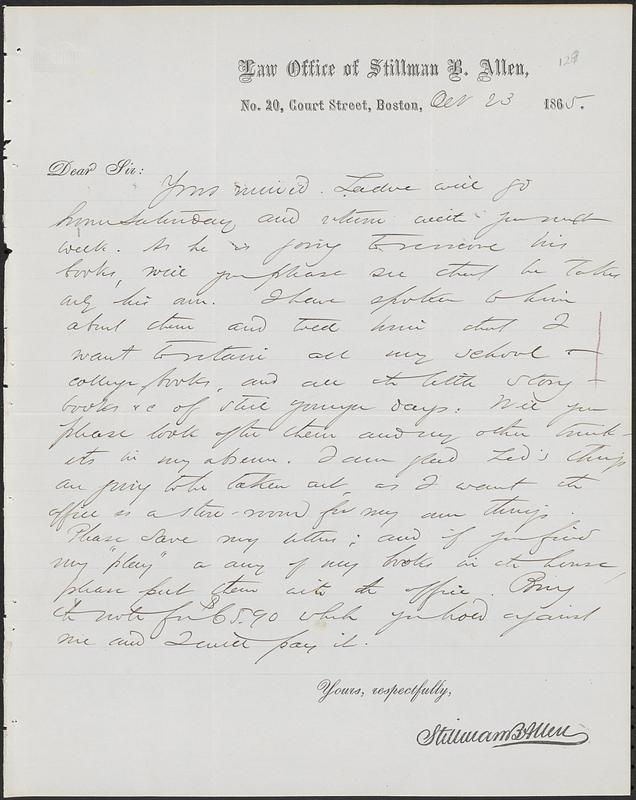 129
Law Office of Stillman B. Allen,
No. 20, Court Street, Boston, Oct 23 1865.
Dear Sir:
Yours received. Ladue will go
home Saturday and return with you next
week. As he is going to remove his
books, will you please see that he takes
only his own. I have spoken to him
about them and told him that I
want to retain all my school &
college books, and all the little story
books &c of still younger days. Will you
please look after them and my other trunk-
ets in my absence. I am glad Led's things
are going to be taken out, as I want the
office as a store-room for my own things.
Please save my letters; and if you find
my "play" or any of my books in the house,
please put them with the office. Bring
the note for $65.90 which you hold against
me and I will pay it.
Yours, respectfully,
Stillman B Allen